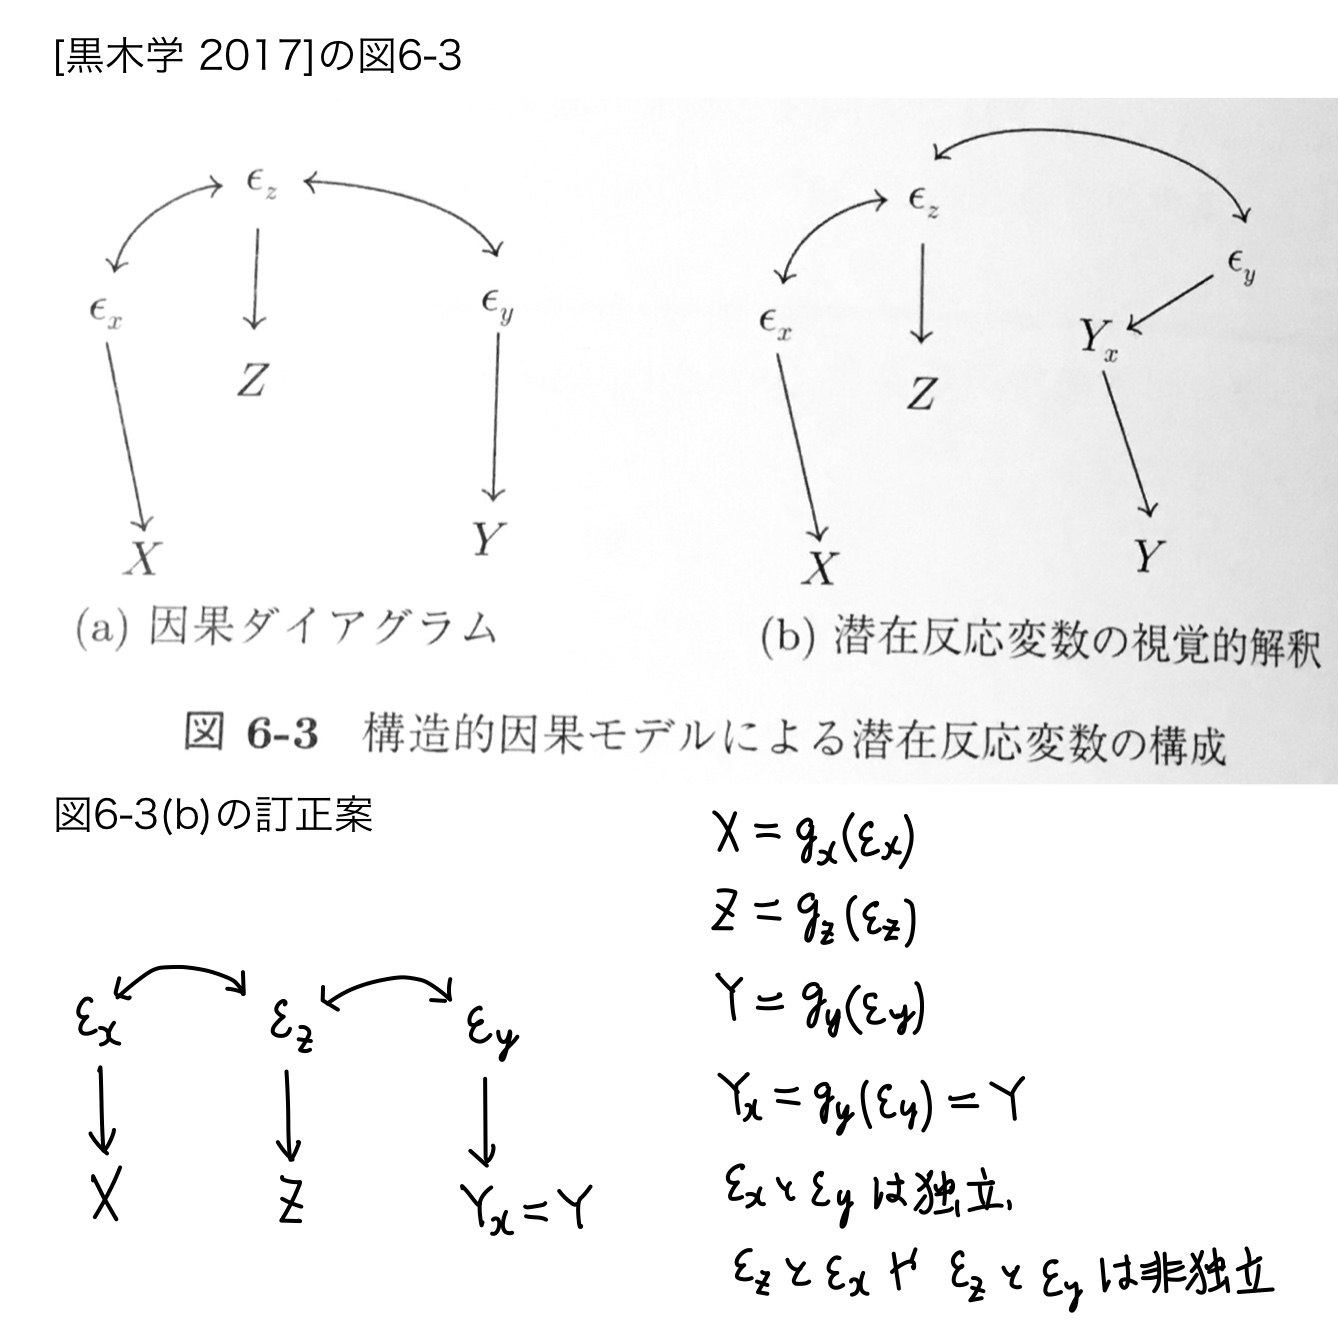 [黒木学 2017]の図6-3
ϵz
ϵx
ϵy
Z
X
Y
(a) 因果ダイアグラム
ϵz
ϵy
ϵx
Yx
Z
X
Y
(b) 潜在反応変数の視覚的解釈
図 6-3 構造的因果モデルによる潜在反応変数の構成
図6-3(b)の訂正案
εx εz εy
X Z Yx = Y
X = gx(εx)
Z = gz(εz)
Y = gy(εy)
Yx = gy(εy) = Y
εxとεyは独立.
εzとεxや εzとεyは非独立